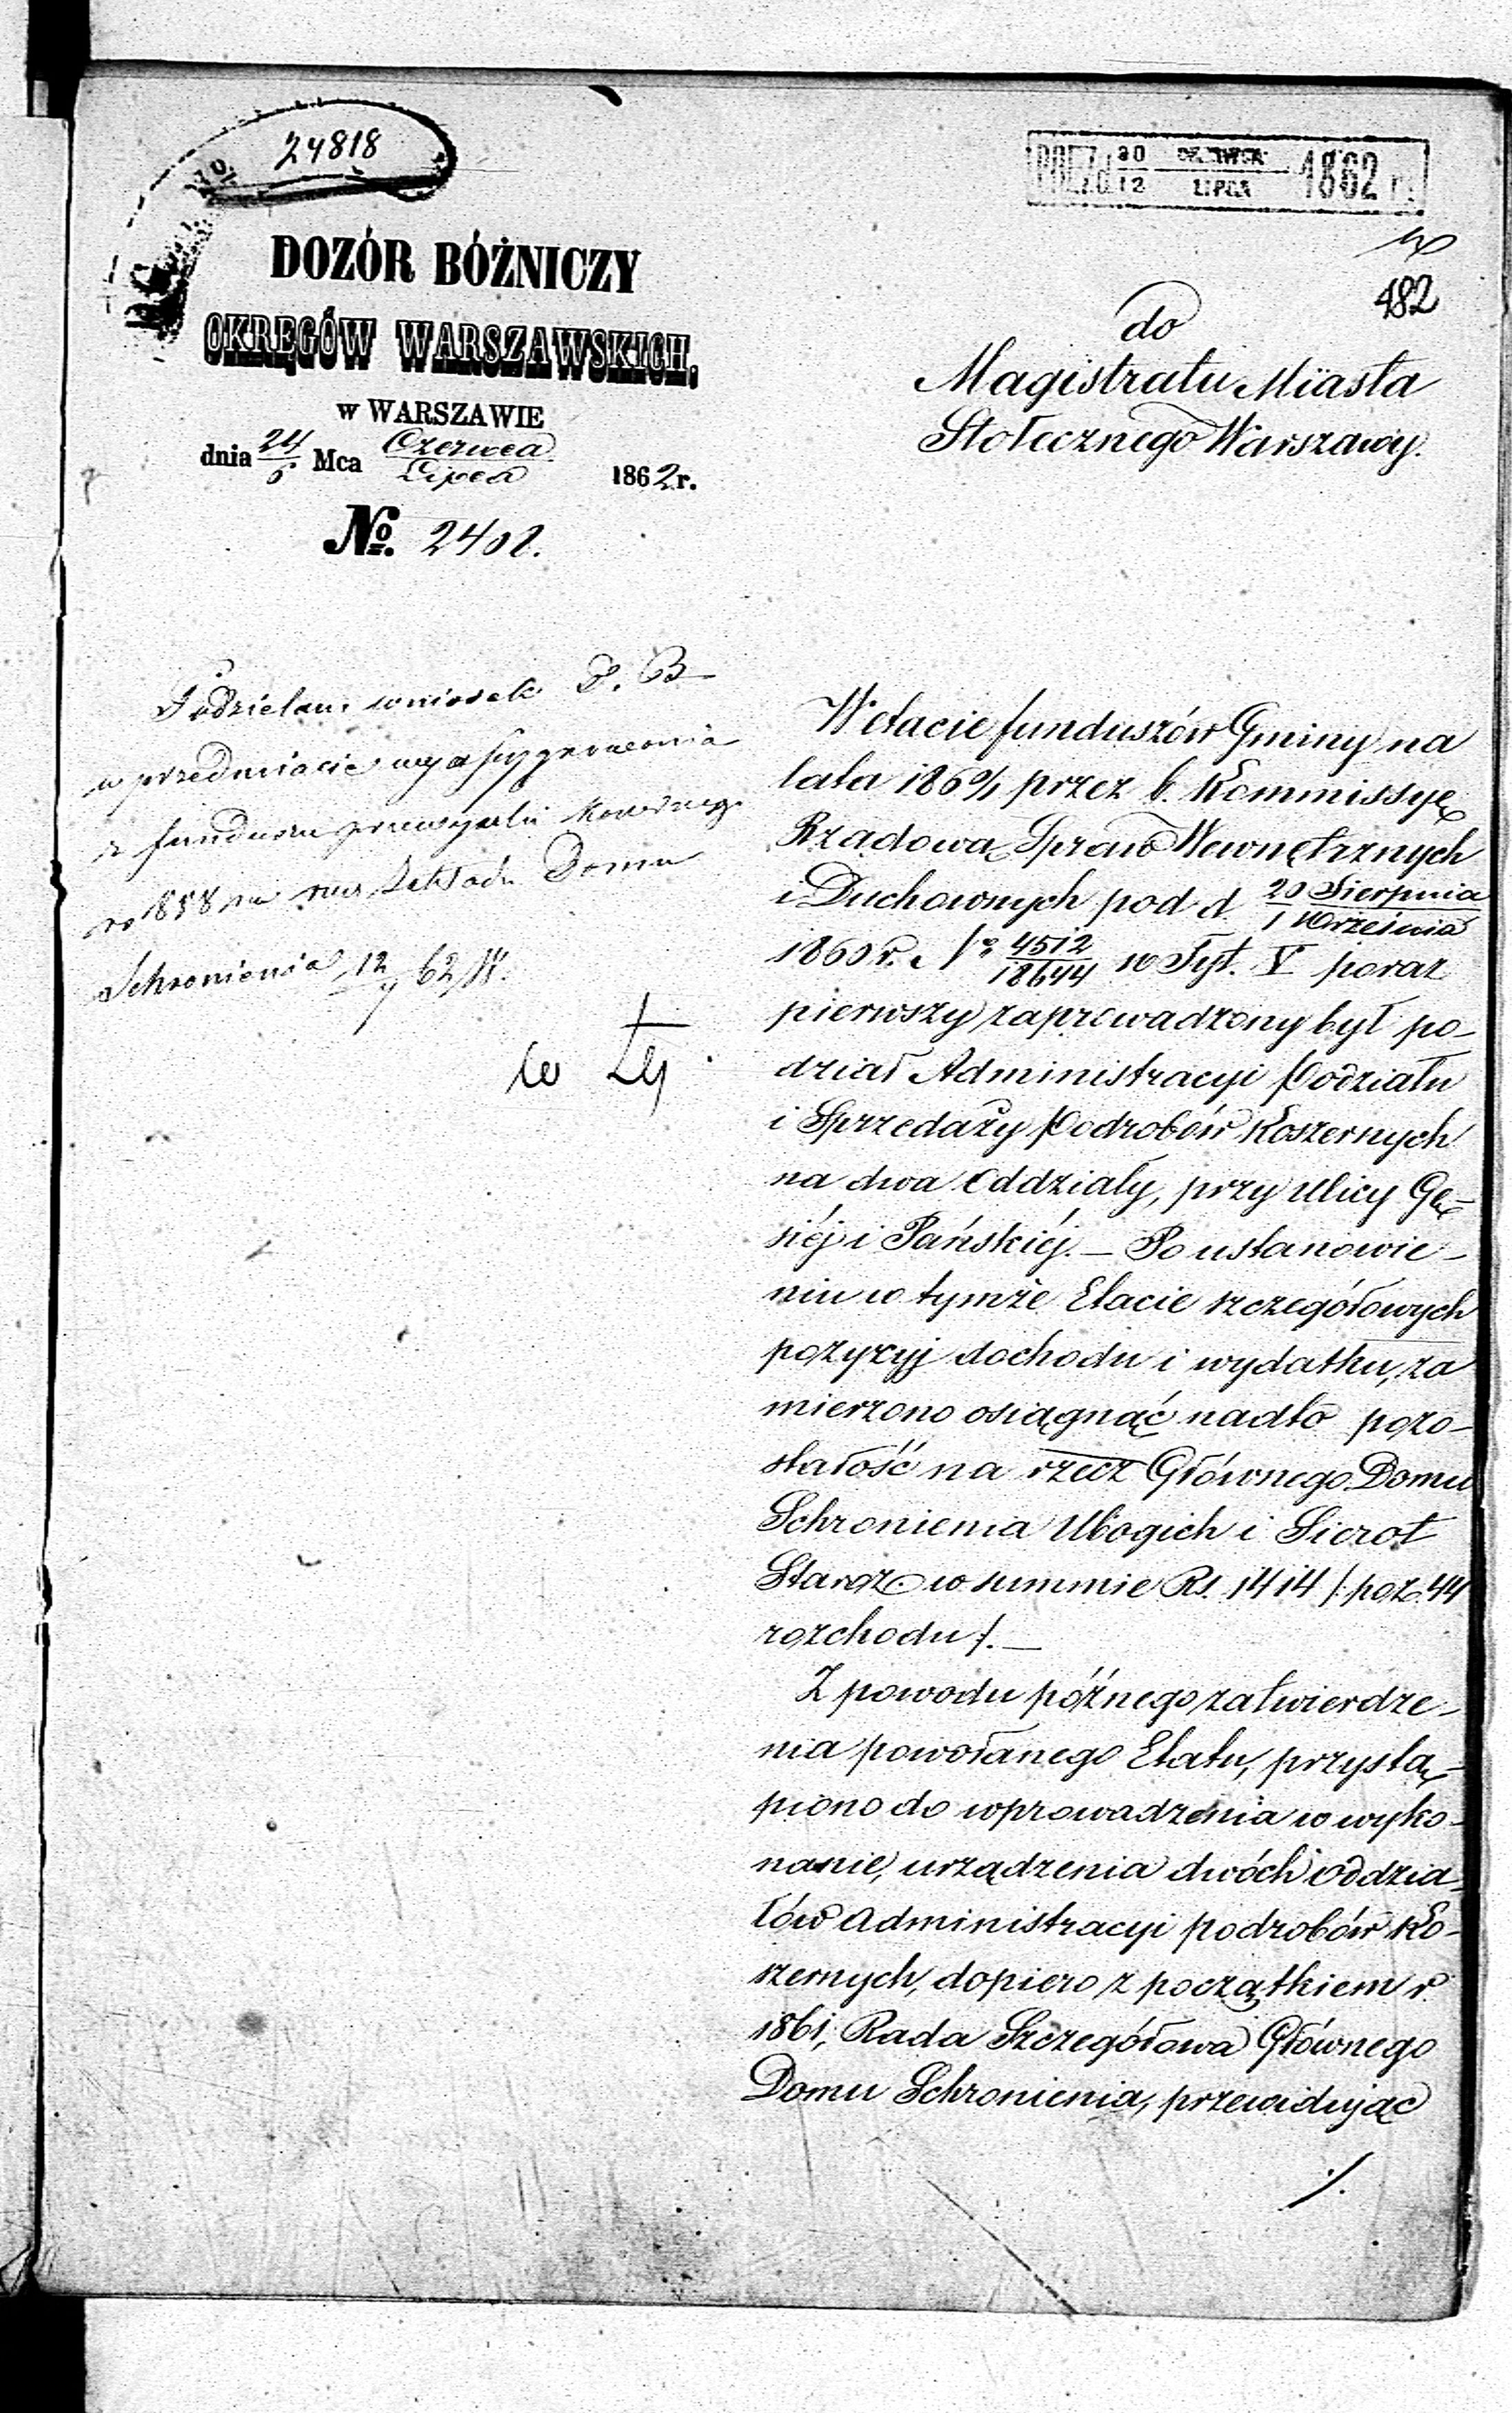 24818
PREZ. d. 30 CZERWCA
12 LIPCA 1862 r.
482
DOZÓR BÓŻNICZY
OKRĘGÓW WARSZAWSKICH,
w WARSZAWIE
dnia 24/6 Mca Czerwca/Lipca 1862 r.
№ 2402.
do
Magistratu Miasta
Stołecznego Warszawy.
Podzielam wniosek D. B
w przedmiocie wyassygnowania
z funduszu przewyżki
ro 858 na rzecz Zakładu Domu
Schronienia 12/7 62
W etacie funduszów Gminy na
lata 1860/1 przez b. Kommissyę
Rządową Spraw Wewnętrznych
i Duchownych pod d 20 Sierpnia/1 Września
1860 r. № 4512/18644 w Tyt. V poraz
pierwszy zaprowadzony był po-
dział Administracyi Podziału
i Sprzedaży Podrobów Koszernych
na dwa Oddziały, przy Ulicy Gę-
siéj i Pańskiéj. — Po ustanowie-
niu w tymże Etacie szczegółowych
pozycyj dochodu i wydatku, za
mierzono osiągnąć nadto pozo-
stałość na rzecz Głównego Domu
Schronienia Ubogich i Sierot
Staroz. w summie Rs. 1414 /: poz. 44
rozchodu /. —
Z powodu późnego zatwierdze-
nia powołanego Etatu, przystą-
piono do wprowadzenia w wyko-
nanie, urządzenia dwóch oddzia-
łów Administracyi podrobów ko-
szernych, dopiero z początkiem r.
1861, Rada Szczegółowa Głównego
Domu Schronienia, przewidując
./.